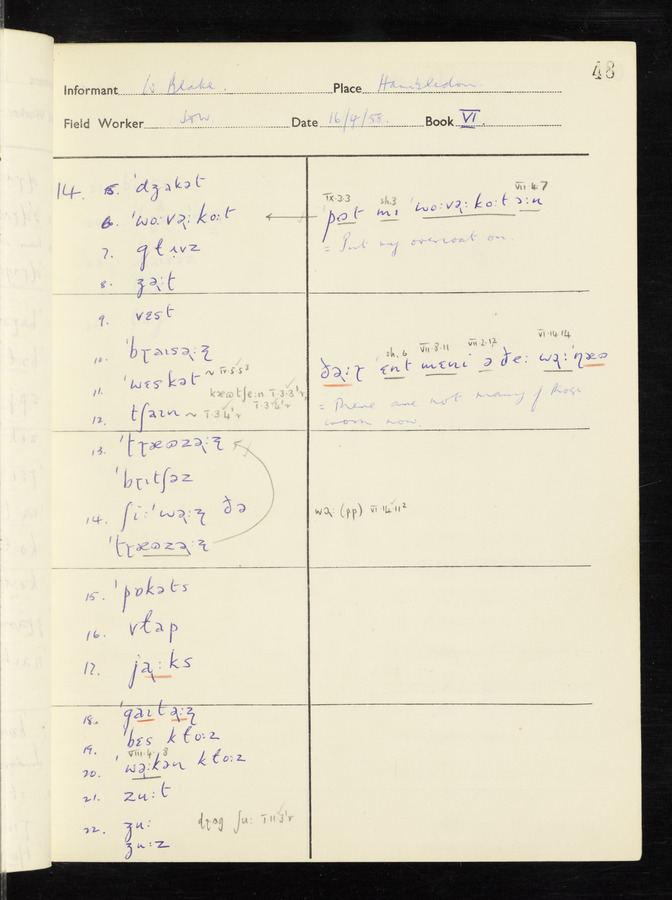 48
Informant W Blake. Place Hambledon.
Field Worker Date 16/4/58. Book VI.
14. 5. ˈdʒakət
6. ˈwoːvəːkoːt
7. gɫɪvz
8. ʒəːt
9. vɛst
10. ˈbɽaɪsəːz̩
11. ˈwɛskət ~ I·5·5³
12. tʃaɪn ~ I·3·4¹r
kæʊtʃeːn I·3·3¹r
I·3·4¹r
13. ˈtɽæʊzəːz̩
ˈbɽɪtʃəz
14. ʃiːˈwəːɽ ðə
ˈtɽæʊzəːz̩
15. ˈpɒkəts
16. vɫap
17. jəːks
18. ˈgaɪtəːz̩
19. ˈbɛs kɫoːz
VIII·4·8
20. ˈwəːkən kɫoːz
21. zuːt
22. ʒuː dɽəg ʃuː III3¹r
ʒuːz
IX·3·3 sh.3 VII·4·7
ˈpət mɪ ˈwoːvəːkoːt ɔːn
= Put my overcoat on.
sh. 6 VII·8·11 VII·2·12 VI·14·14
ðəːɽ ɛnt mɛni ə ðeː wəːˈnæʊ
= There are not many of those
worn now.
wəː (pp) VI·14·11²